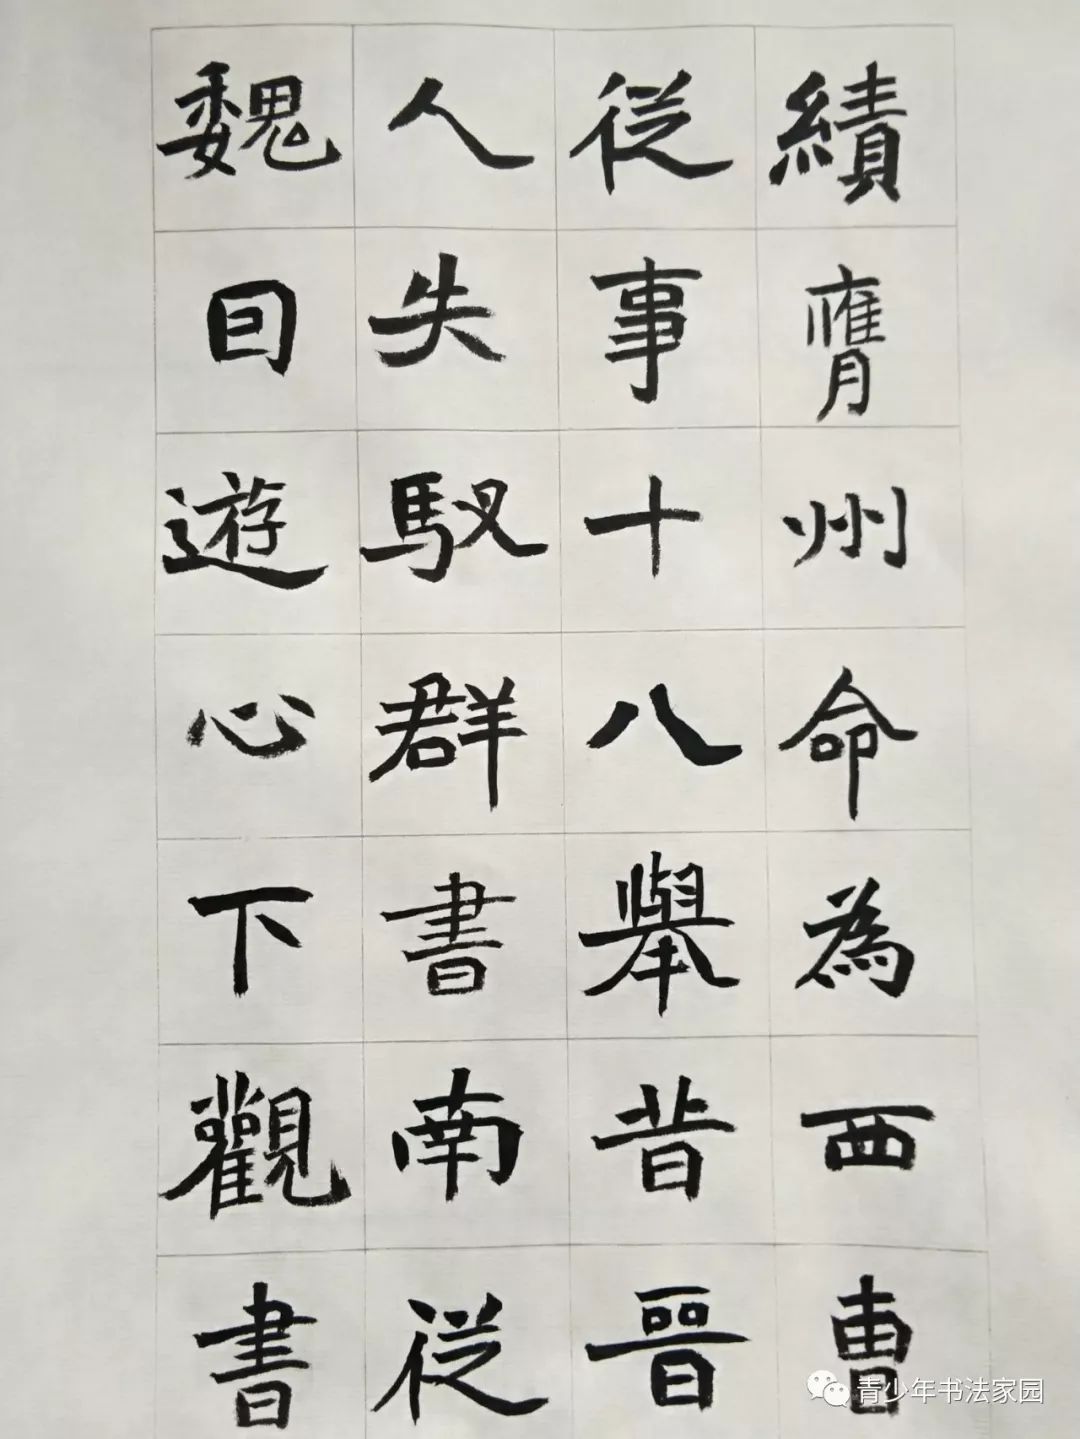 績膺州命為西曹
從事十八舉昔晉
人失馭群書南從
魏因遊心下觀書
青少年书法家园